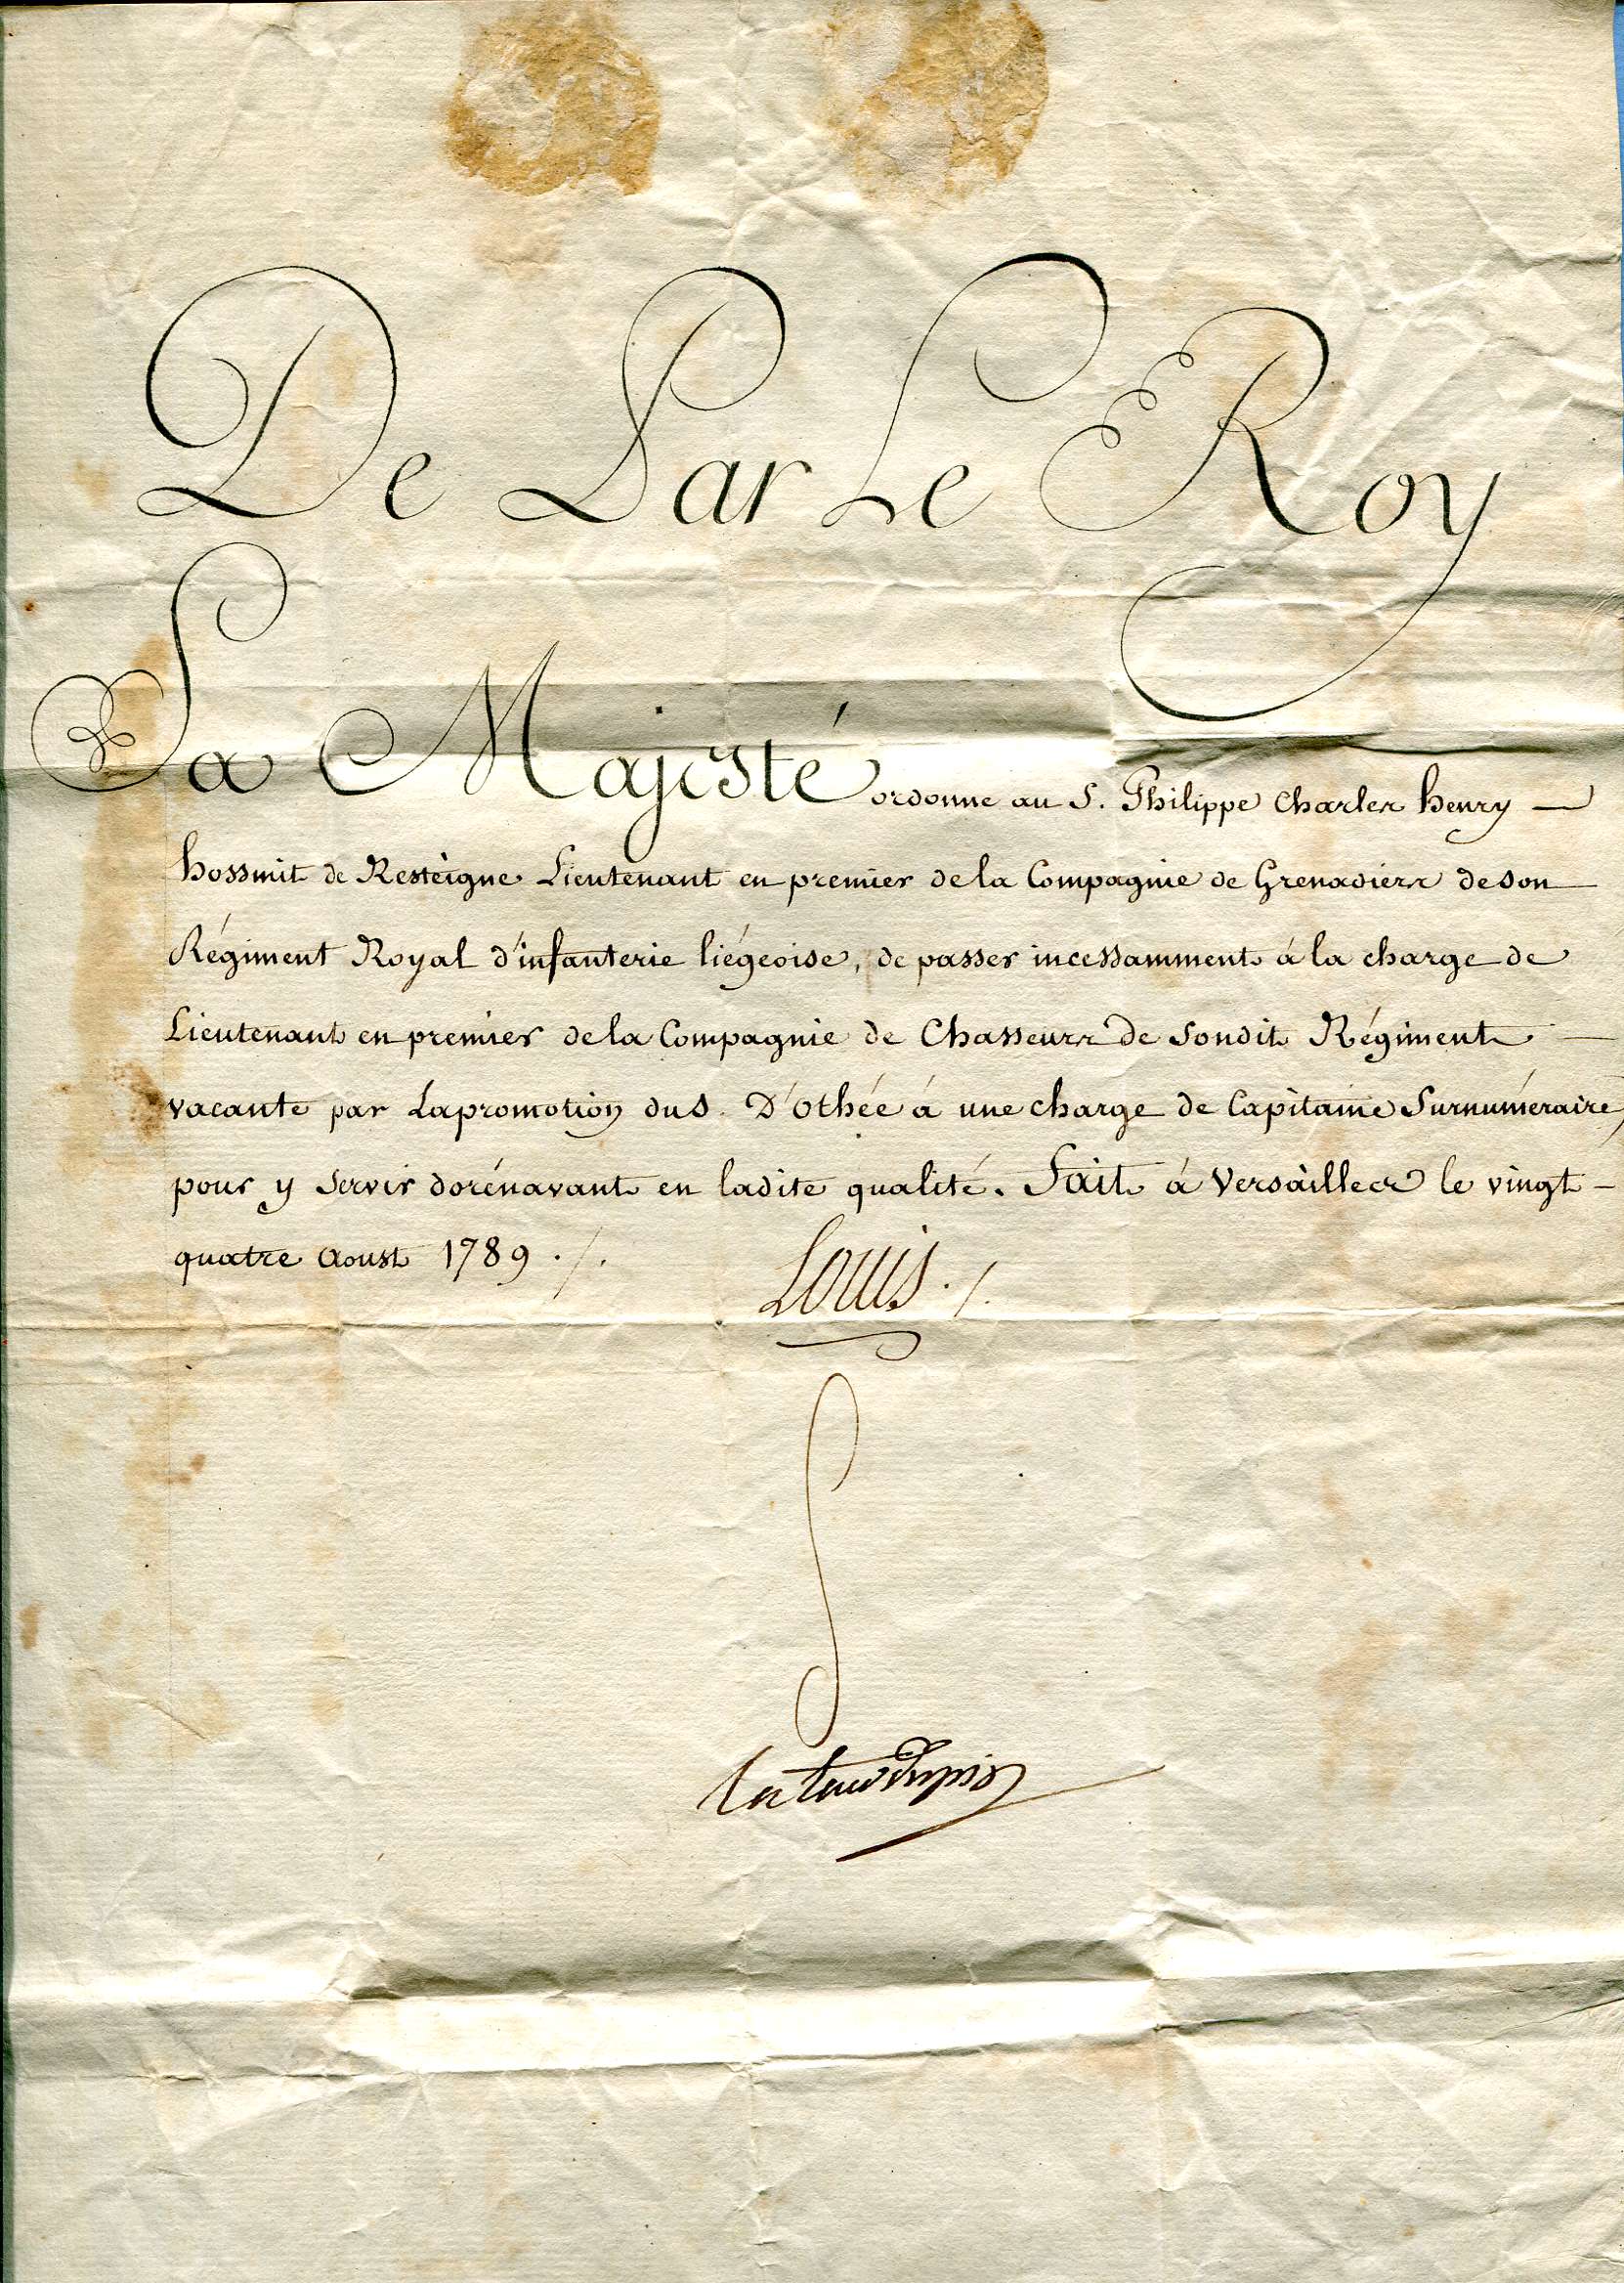 De Par Le Roy
Sa Majesté ordonne au S. Philippe Charles henry
hossmit de Resteigne Lieutenant en premier de la Compagnie de Grenadiers de son
Régiment Royal d'infanterie liégeoise, de passer incessamment à la charge de
Lieutenant en premier de la Compagnie de Chasseurs de sondit Régiment
vacante par la promotion du S. D'Othée à une charge de Capitaine Surnuméraire,
pour y servir dorénavant en ladite qualité. Fait à Versailles le vingt-
quatre Aoust 1789 ./.
Louis ./.
Latourdupin